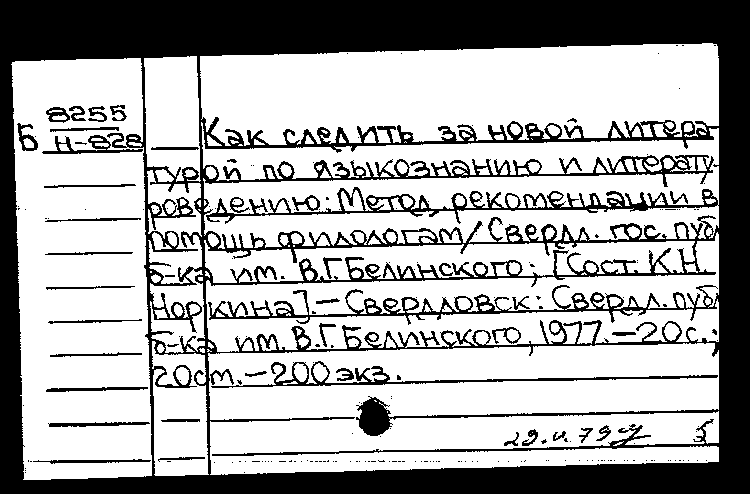 8255
Б Н-828
Как следить за новой литера-
турой по языкознанию и литерату-
роведению: Метод. рекомендации в
помощь филологам/Свердл. гос. публ
б-ка им. В.Г.Белинского; [Сост. К.Н.
Норкина].—Свердловск: Свердл. публ
б-ка им. В.Г.Белинского, 1977.—20с.;
20см.—200 экз.